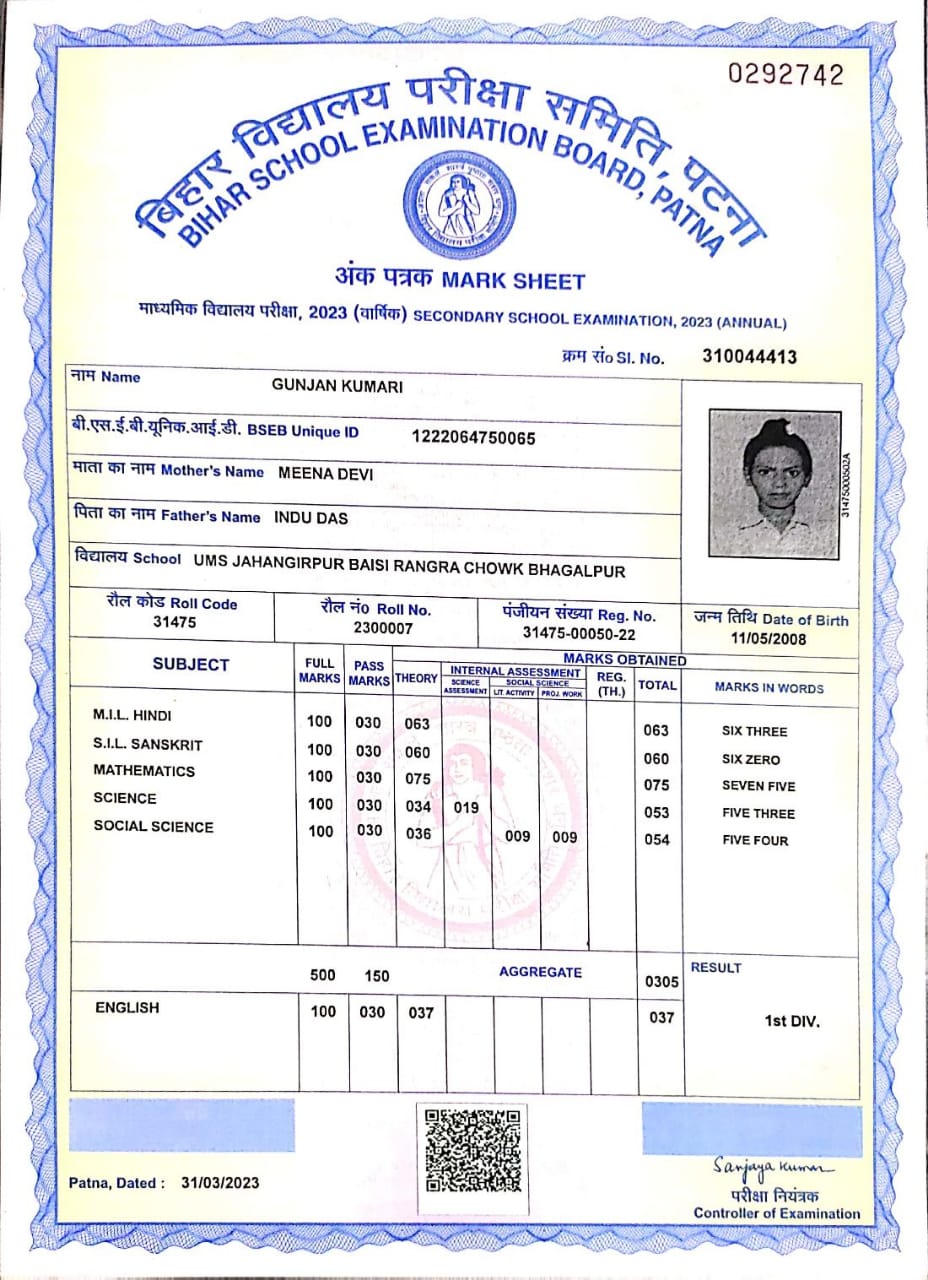 0292742
बिहार विद्यालय परीक्षा समिति, पटना
BIHAR SCHOOL EXAMINATION BOARD, PATNA
अंक पत्रक MARK SHEET
माध्यमिक विद्यालय परीक्षा, 2023 (वार्षिक) SECONDARY SCHOOL EXAMINATION, 2023 (ANNUAL)
क्रम सं० Sl. No. 310044413
नाम Name GUNJAN KUMARI
बी.एस.ई.बी.यूनिक.आई.डी. BSEB Unique ID 1222064750065
माता का नाम Mother's Name MEENA DEVI
पिता का नाम Father's Name INDU DAS
विद्यालय School UMS JAHANGIRPUR BAISI RANGRA CHOWK BHAGALPUR
31475000502A
रौल कोड Roll Code रौल नं० Roll No. पंजीयन संख्या Reg. No. जन्म तिथि Date of Birth
31475 2300007 31475-00050-22 11/05/2008
SUBJECT FULL MARKS PASS MARKS MARKS OBTAINED
THEORY INTERNAL ASSESSMENT REG. (TH.) TOTAL MARKS IN WORDS
SCIENCE ASSESSMENT SOCIAL SCIENCE
LIT. ACTIVITY PROJ. WORK
M.I.L. HINDI 100 030 063 063 SIX THREE
S.I.L. SANSKRIT 100 030 060 060 SIX ZERO
MATHEMATICS 100 030 075 075 SEVEN FIVE
SCIENCE 100 030 034 019 053 FIVE THREE
SOCIAL SCIENCE 100 030 036 009 009 054 FIVE FOUR
500 150 AGGREGATE 0305 RESULT
ENGLISH 100 030 037 037 1st DIV.
Patna, Dated : 31/03/2023
Sanjaya Kumar
परीक्षा नियंत्रक
Controller of Examination